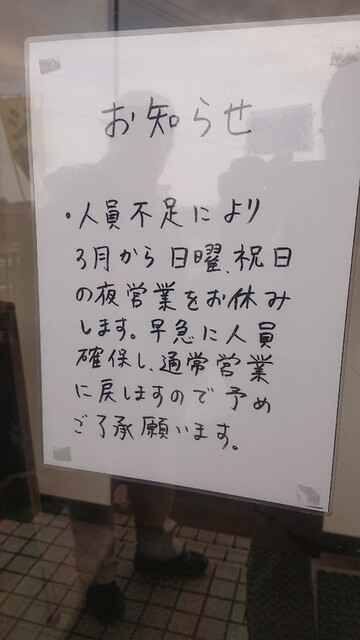 お知らせ
・人員不足により
3月から日曜、祝日
の夜営業をお休み
します。早急に人員
確保し、通常営業
に戻しますので予め
ご了承願います。